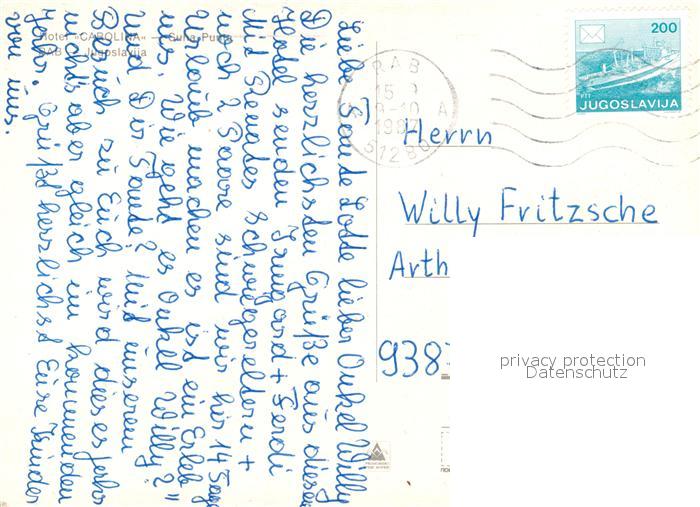 Hotel «CAROLINA» — Suha Punta
RAB — Jugoslavija
Liebe Tante Lotte lieber Onkel Willy
Die herzlichsten Grüße aus dieses
Hotel senden Irmgard + Ferdi
Mit Renates Schwiegereltern +
noch 2 Paare sind wir hir 14 Tage
Urlaub machen es ist ein Erleb
nis. Wie geht es Onkel Willy?"
Und Dir Tande? Mit unserem
Besuch zu Euch wird dieses Jahr
nichts aber gleich im kommenden
Jahr. Grüßt herzlichst Eure Kinder
von uns.
RAB
1987
51280
200
PTT
JUGOSLAVIJA
Herrn
Willy Fritzsche
Arth
938
privacy protection
Datenschutz